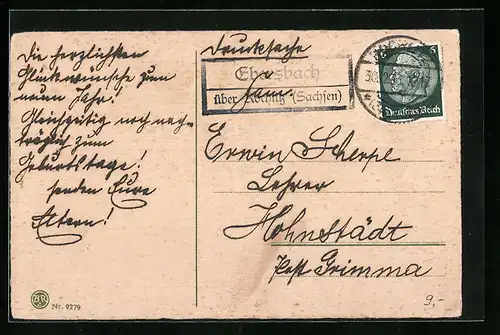 Die herzlichsten
Glückwünsche zum
neuen Jahr!
Gleichzeitig noch nach-
träglich zum
Geburtstage!
senden Eure
Eltern!
BR
Nr. 9279
Drucksache
Ebersbach
über (Sachsen)
Deutsches Reich
Erwin Scherpe
Lehrer
Hohnstädt
Post Grimma
9,-